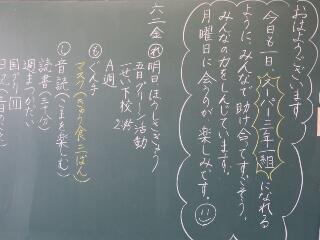 おはようございます
今日も一日スーパー三年一組になれる
ように、みんなで助け合ってすごそう。
みんなの力をしんじています。
月曜日に会うのが楽しみです。
六二金 明日ほうそきょう
五時グリーン活動
一せい下校
A週
も ぐん手
マスク(きゅう食、三ばん)
し 音読(こまを楽しむ)
読書(三十分)
週まつかだい
国ドリ11